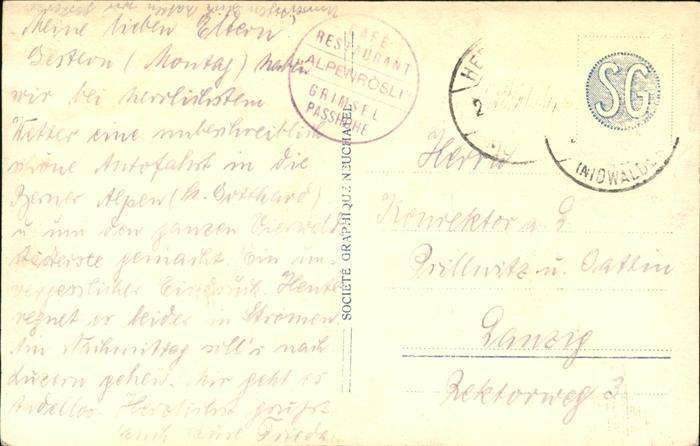 Meine lieben Eltern!
Gestern (Montag) haben
wir bei herrlichstem
Wetter eine unbeschreiblich
schöne Autofahrt in die
Berner Alpen (St. Gotthard)
u. um den ganzen Vierwald-
stättersee gemacht. Ein un-
vergesslicher Eindruck. Heute
regnet es leider in Strömen
Am Nachmittag soll's nach
Luzern gehen. Mir geht es
tadellos. Herzlichst grüsst
Euch Eure
CAFÉ
RESTAURANT
"ALPENRÖSLI"
GRIMSEL
PASSHÖHE
SOCIÉTÉ GRAPHIQUE NEUCHATEL
SG
HER
(NIDWALDEN)
Herrn
Konrektor a. D.
Prillwitz u. Gattin
Danzig
Rektorweg 3